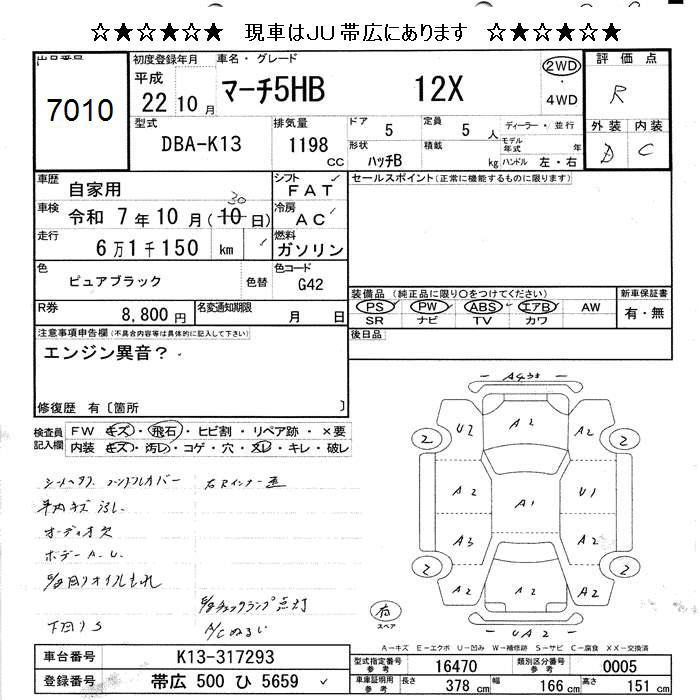 ☆★☆★☆★ 現車はJU帯広にあります ☆★☆★☆★
出品番号
7010
初度登録年月
平成
22 10 月
車名・グレード
マーチ5HB 12X
2WD
・
4WD
評価点
R
型式
DBA-K13
排気量
1198
CC
ドア
5
定員
5 人
ディーラー・並行
モデル年式 年
形状
ハッチB
積載
kg
ハンドル 左・右
外装 内装
D C
車歴
自家用
シフト
FAT
車検
令和 7 年 10 月 (10 日)
30
冷房
AC
走行
6 万 1 千 150 km
燃料
ガソリン
色
ピュアブラック
色替
色コード
G42
R券
8,800 円
名変通知期限
月 日
セールスポイント(正常に機能するものに限ります)
装備品 (純正品に限り○をつけてください)
PS PW ABS エアB AW
SR ナビ TV カワ
新車保証書
有・無
後日品
注意事項申告欄 (不具合内容等は具体的に記入して下さい)
エンジン異音?
修復歴 有〔箇所 〕
検査員
記入欄
FW キズ・飛石・ヒビ割・リペア跡・×要
内装 キズ・汚れ・コゲ・穴・スレ・キレ・破レ
オーディオ欠
ボデーA.U.
下回りS
チェックランプ点灯
A/Cぬるい
U2
A2
2
2
A2
A1
U1
A3
A2
2
2
A2
A2
A2
UA2
有
スペア
A-キズ E-エクボ U-凹み W-補修跡 S-サビ C-腐食 XX-交換済
車台番号
K13-317293
登録番号
帯広 500 ひ 5659
型式指定番号
参考
16470
類別区分番号
参考
0005
車庫証明用
参考
長さ
378 cm
幅
166 cm
高さ
151 cm